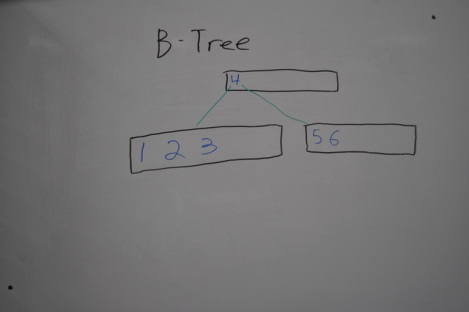 B-Tree
4
1 2 3
56